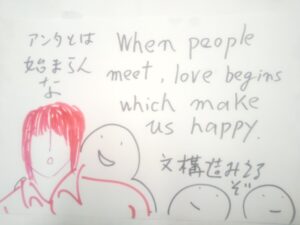 アンタとは
始まらん
な
When people
meet, love begins
which make
us happy.
文構造みえる
ぞ